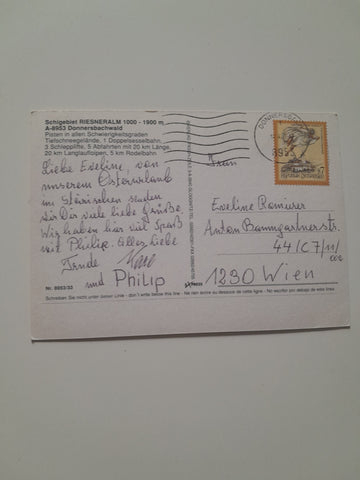 Schigebiet RIESNERALM 1000 - 1900 m
A-8953 Donnersbachwald
Pisten in allen Schwierigkeitsgraden
Tiefschneegelände, 1 Doppelsesselbahn,
3 Schlepplifte, 5 Abfahrten mit 20 km Länge,
20 km Langlaufloipen, 5 km Rodelbahn
Liebe Eveline, von
unserem Osterurlaub
im Steirischen senden
wir Dir viele liebe Grüße.
Wir haben hier viel Spaß
mit Philip. Alles Liebe
und PHILIP
Nr. 8953/33
Schreiben Sie nicht unter dieser Linie - don't write below this line - Ne rien écrire au-dessous de cette ligne - No escribir por debajo de esta línea
DONNERSBACH
8953
7
REPUBLIK ÖSTERREICH
Eveline Romirer
Anton Baumgartnerstr.
44/C7/11/
002
1230 Wien